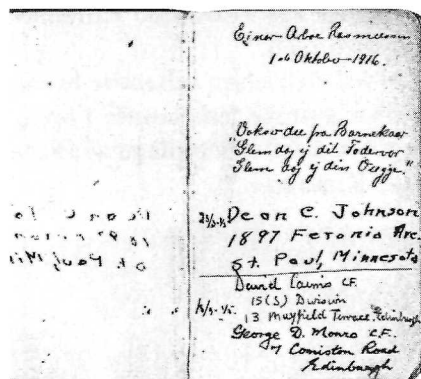 Einar Aboe Rasmussen
1ste Oktober 1916.
"Vokse du fra Barnekaar
Glem dog ej dit Fadervor
Glem dog ej din
Dean C. Johnson
1897 Feronia Ave.
St. Paul, Minnesota
David Cairns CF.
15 (S) Division
13 Mayfield Terrace. Edinburgh
George D. Monro C.F.
7 Coniston Road
Edinburgh